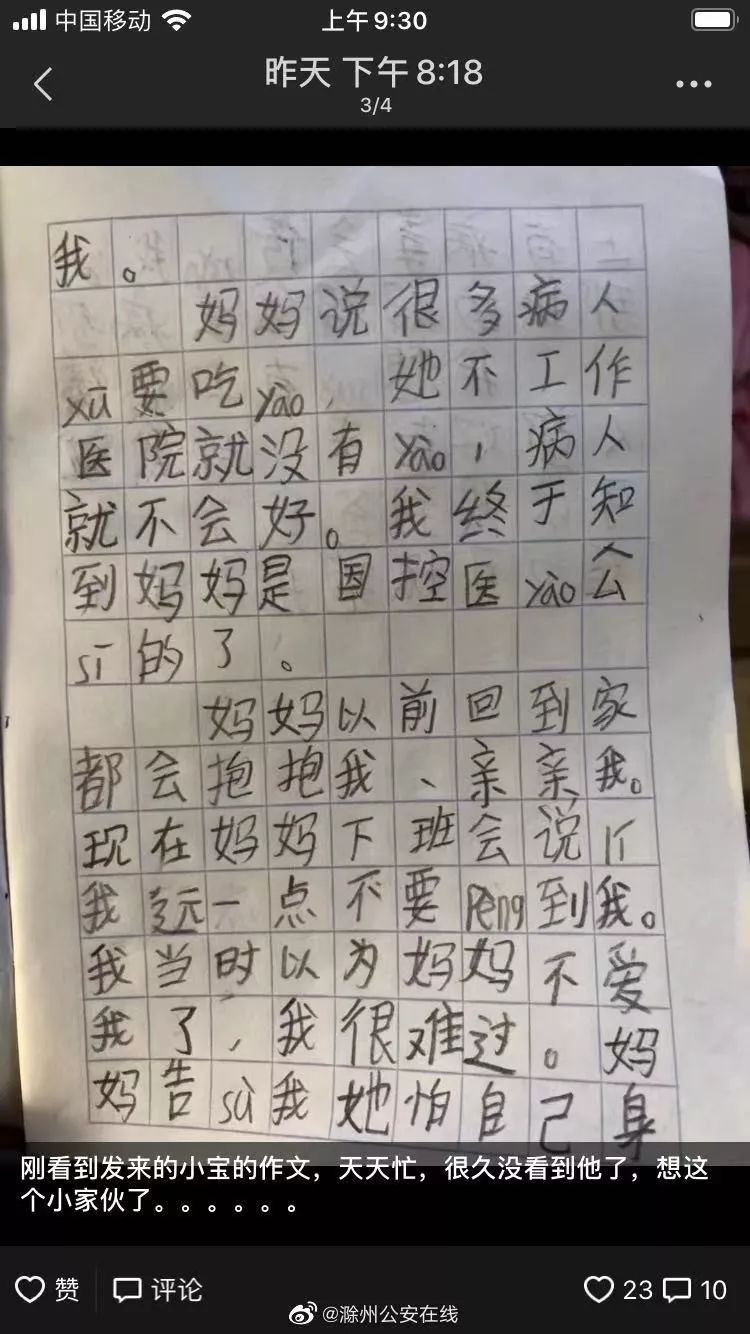 中国移动 上午9:30
昨天 下午8:18
3/4
我。
妈妈说很多病人
xū要吃yào，她不工作
医院就没有yào，病人
就不会好。我终于知
到妈妈是国控医yào公
sī的了。
妈妈以前回到家
都会抱抱我、亲亲我。
现在妈妈下班会说
我远一点不要Pèng到我。
我当时以为妈妈不爱
我了，我很难过。妈
妈告sù我她怕自己身
刚看到发来的小宝的作文，天天忙，很久没看到他了，想这
个小家伙了。。。。。。
赞 评论 23 10
@滁州公安在线